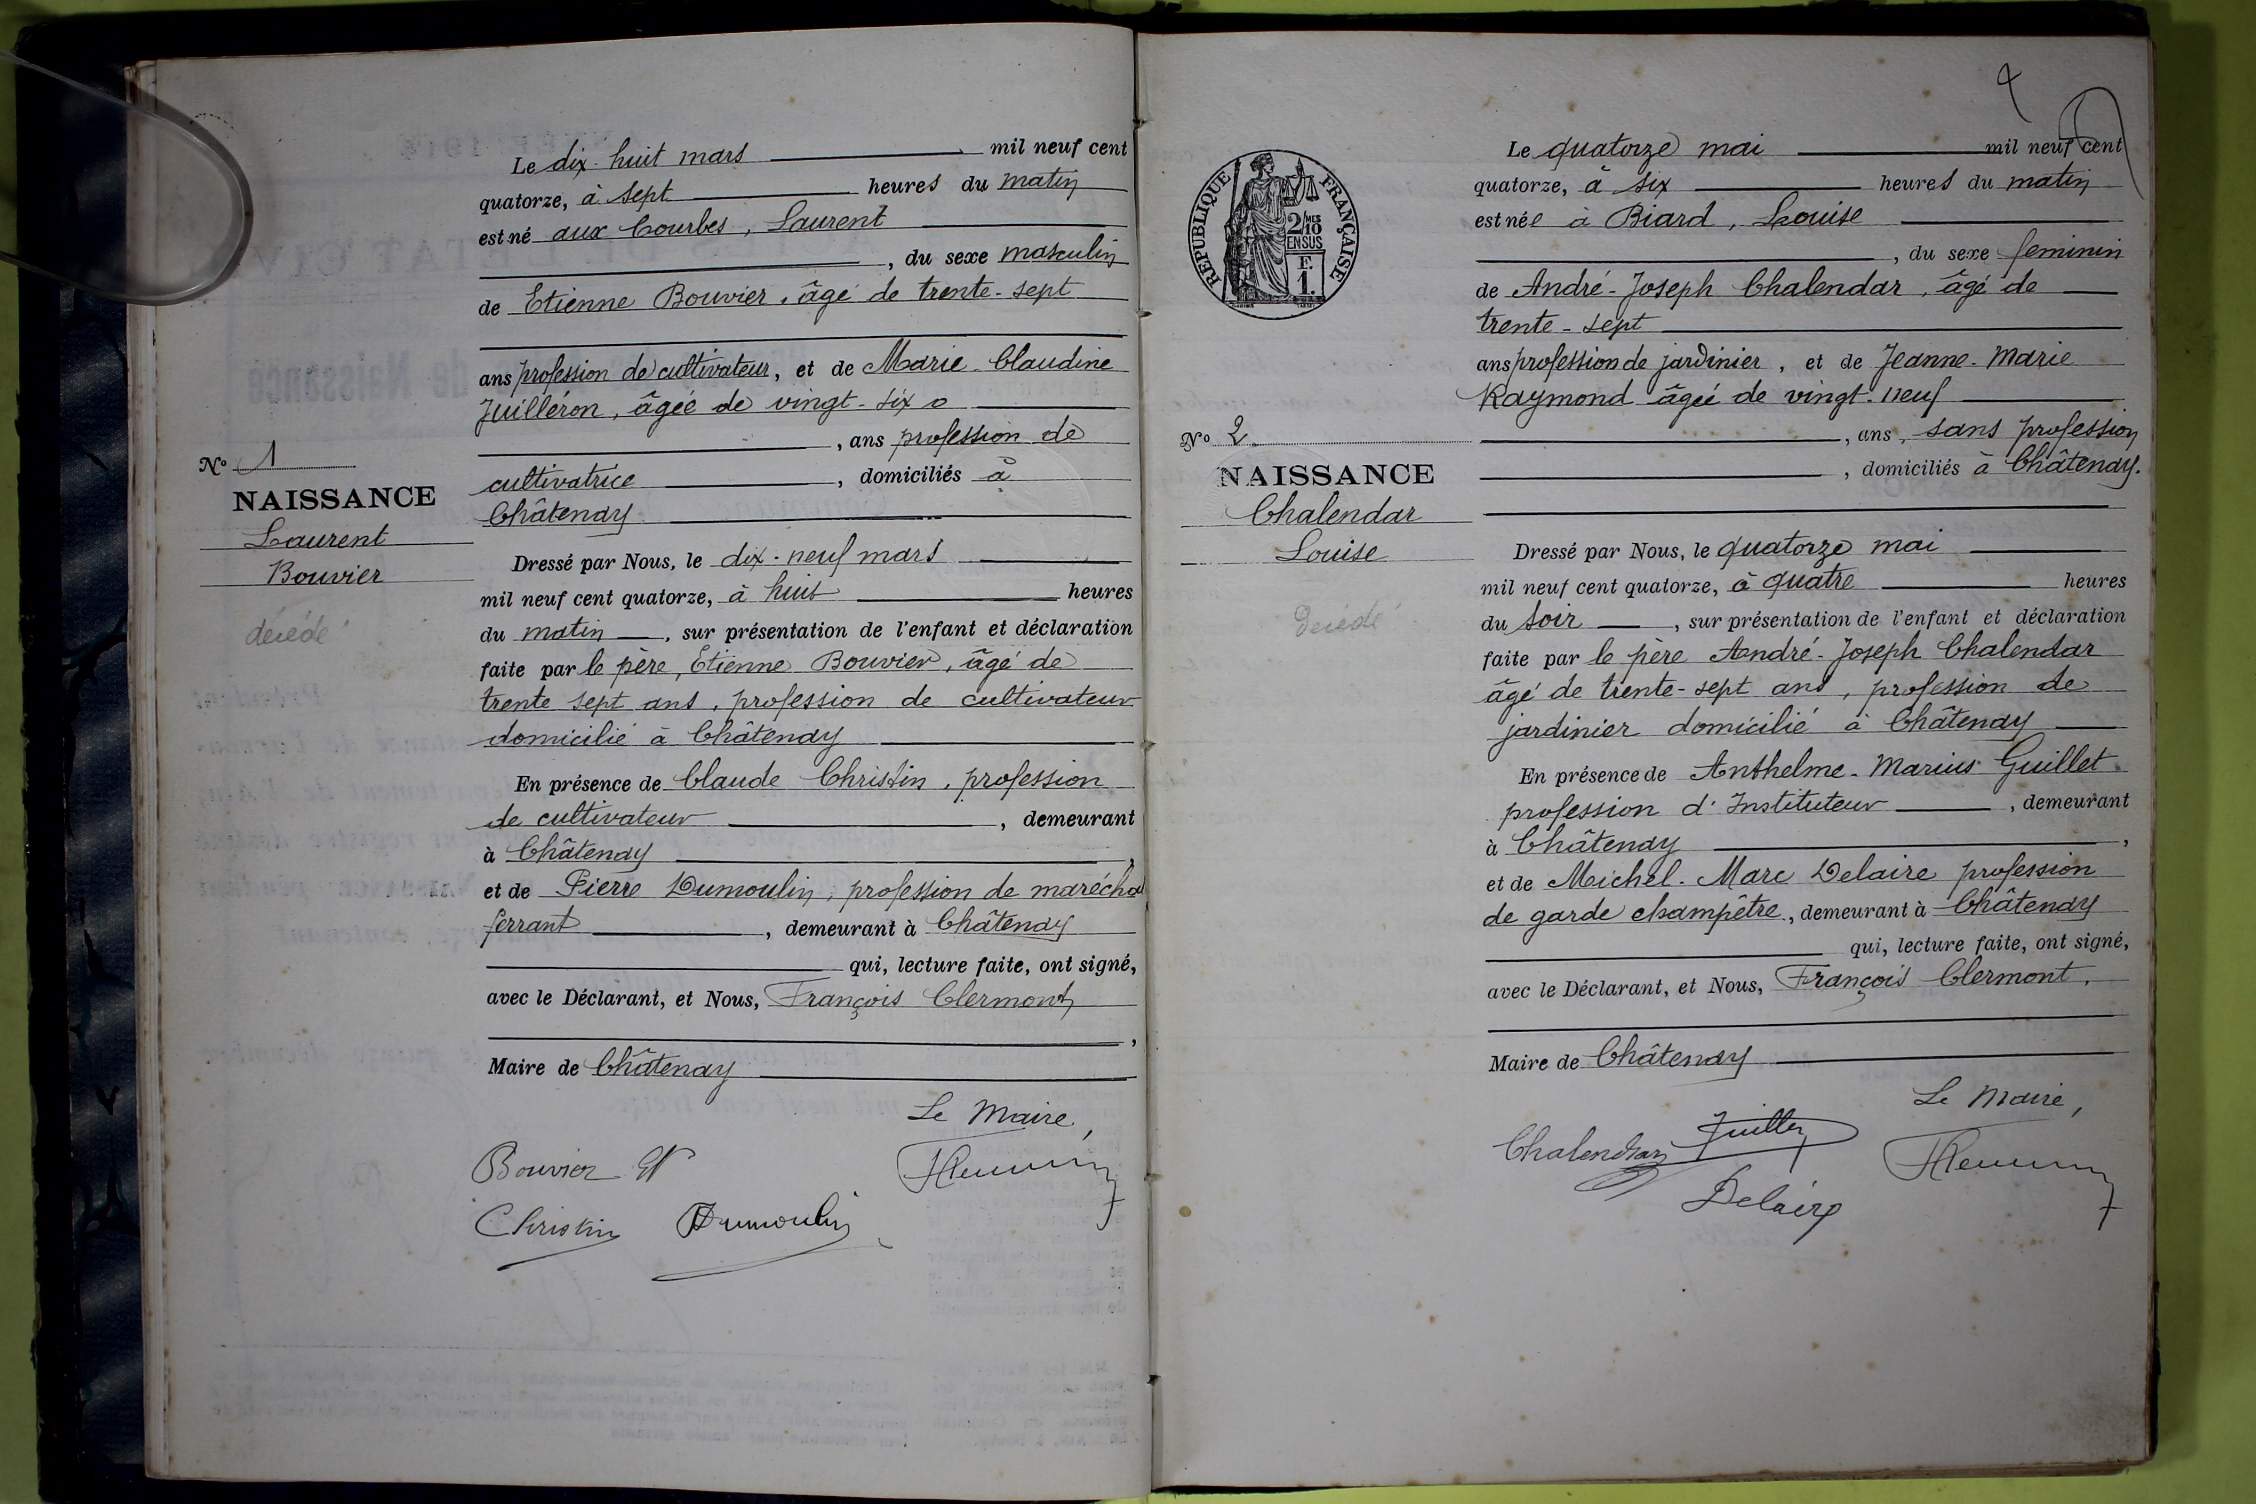 Le dix-huit mars mil neuf cent
quatorze, à sept heures du matin
est né aux Courbes, Laurent
, du sexe masculin
de Etienne Bouvier, âgé de trente-sept
ans profession de cultivateur, et de Marie-Claudine
Juilléron, âgée de vingt-six
, ans profession de
cultivatrice, domiciliés à
Châtenay
No 1
NAISSANCE
Laurent
Bouvier
décédé
Dressé par Nous, le dix-neuf mars
mil neuf cent quatorze, à huit heures
du matin, sur présentation de l'enfant et déclaration
faite par le père, Etienne Bouvier, âgé de
trente sept ans, profession de cultivateur
domicilié à Châtenay
En présence de Claude Christin, profession
de cultivateur, demeurant
à Châtenay,
et de Pierre Dumoulin, profession de maréchal
ferrant, demeurant à Châtenay
qui, lecture faite, ont signé,
avec le Déclarant, et Nous, François Clermont
,
Maire de Châtenay
Le Maire,
Bouvier
Christin Dumoulin
RÉPUBLIQUE FRANÇAISE
2/10 MES
EN SUS
F.
1.
Le quatorze mai mil neuf cent
quatorze, à six heures du matin
est née à Biard, Louise
, du sexe feminin
de André-Joseph Chalendar, âgé de
trente-sept
ans profession de jardinier, et de Jeanne-Marie
Raymond âgée de vingt-neuf
, ans, sans profession
, domiciliés à Châtenay.
No 2
NAISSANCE
Chalendar
Louise
Décédé
Dressé par Nous, le quatorze mai
mil neuf cent quatorze, à quatre heures
du soir, sur présentation de l'enfant et déclaration
faite par le père André-Joseph Chalendar
âgé de trente-sept ans, profession de
jardinier domicilié à Châtenay
En présence de Anthelme-Marius Guillet
profession d'Instituteur, demeurant
à Châtenay,
et de Michel-Marc Delaire profession
de garde champêtre, demeurant à Châtenay
qui, lecture faite, ont signé,
avec le Déclarant, et Nous, François Clermont,
Maire de Châtenay
Le Maire,
Chalendar
Delaire